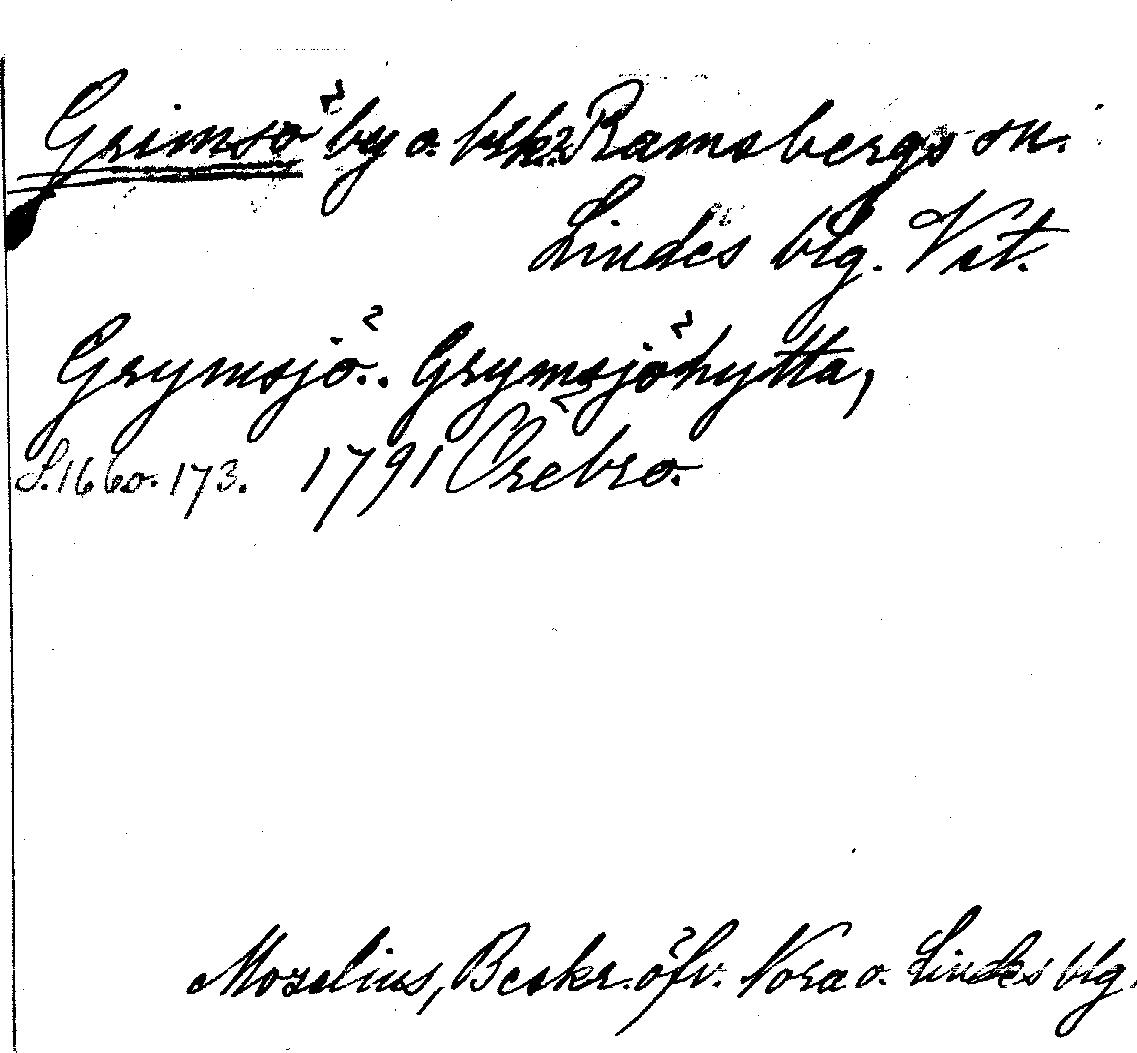 Grimsö by o. brk. Ramsbergs sn.
Lindes blg. Vst.
Grymsjö.. Grymsjöhytta,
S. 1660. 173. 1791 Örebro.
Moselius, Beskr. öfv. Nora o. Lindes blg.